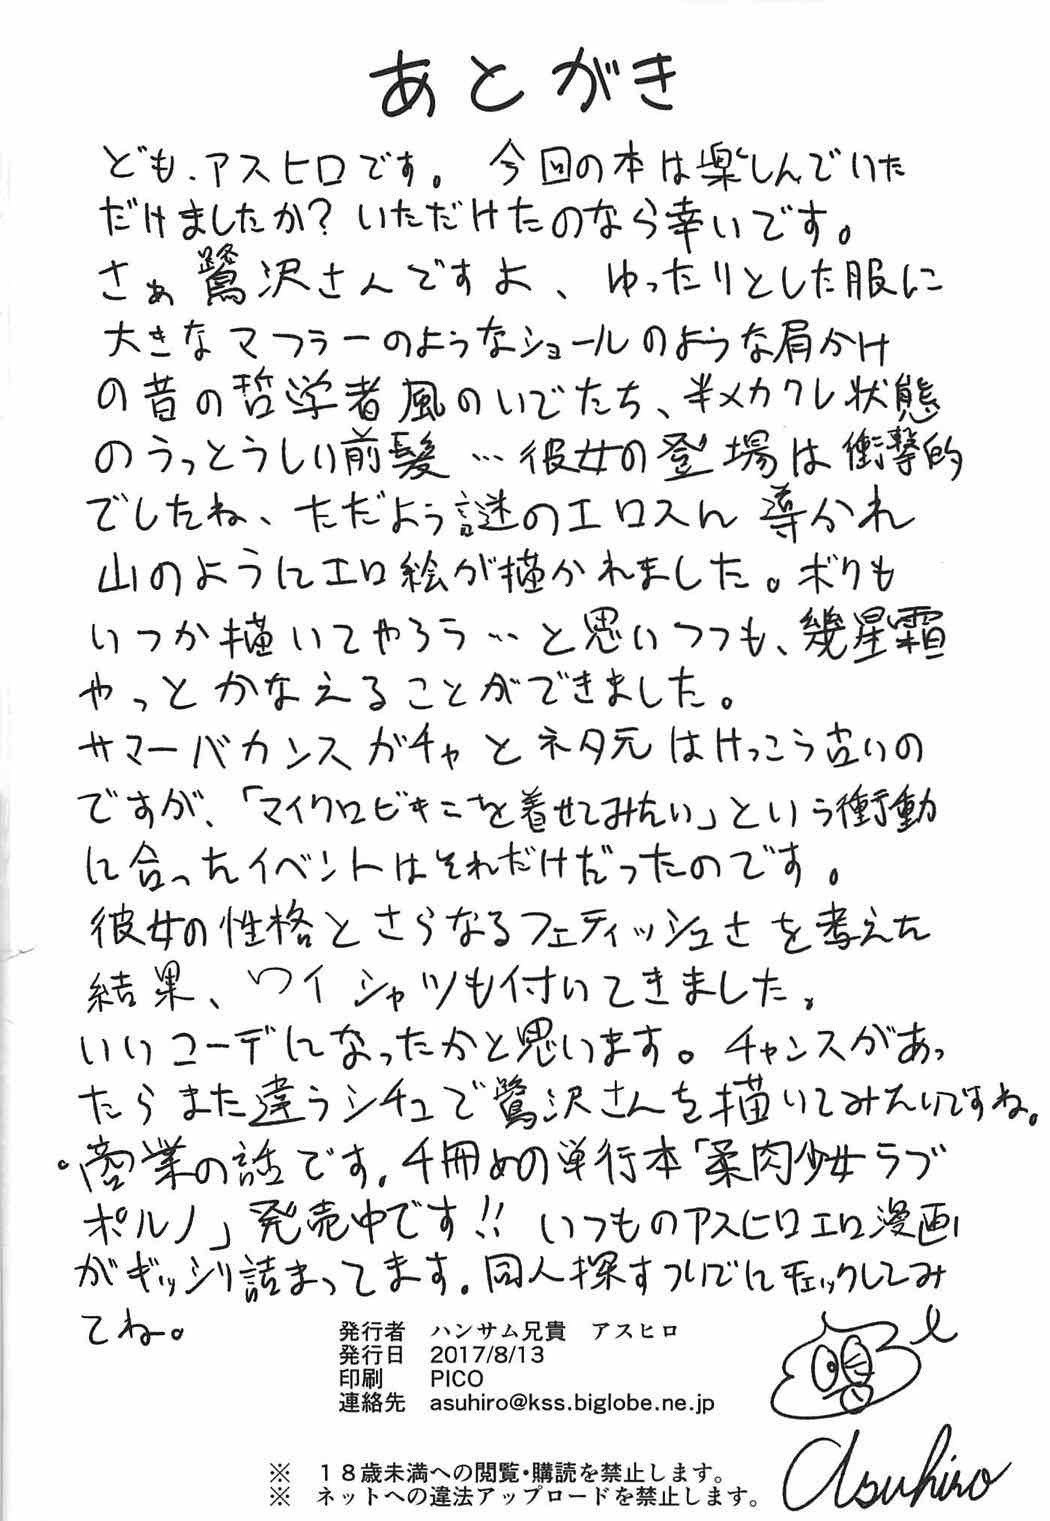 あとがき
ども、アスヒロです。今回の本は楽しんでいた
だけましたか?いただけたのなら幸いです。
さぁ鷺沢さんですよ、ゆったりとした服に
大きなマフラーのようなショールのような肩かけ
の昔の哲学者風のいでたち、半メカクレ状態
のうっとうしい前髪…彼女の登場は衝撃的
でしたね、ただよう謎のエロスに導かれ
山のようにエロ絵が描かれました。ボクも
いつか描いてやろう…と思いつつも、幾星霜
やっとかなえることができました。
サマーバカンスガチャとネタ元はけっこう古いの
ですが、「マイクロビキニを着せてみたい」という衝動
に合ったイベントはそれだけだったのです。
彼女の性格とさらなるフェティッシュさを考えた
結果、ワイシャツも付いてきました。
いいコーデになったかと思います。チャンスがあっ
たらまた違うシチュで鷺沢さんを描いてみたいですね。
・商業の話です。4冊めの単行本「柔肉少女ラブ
ポルノ」発売中です!!いつものアスヒロエロ漫画
がギッシリ詰まってます。同人探すついでにチェックしてみ
てね。
発行者 ハンサム兄貴 アスヒロ
発行日 2017/8/13
印刷 PICO
連絡先 asuhiro@kss.biglobe.ne.jp
Asuhiro
※ 18歳未満への閲覧・購読を禁止します。
※ ネットへの違法アップロードを禁止します。